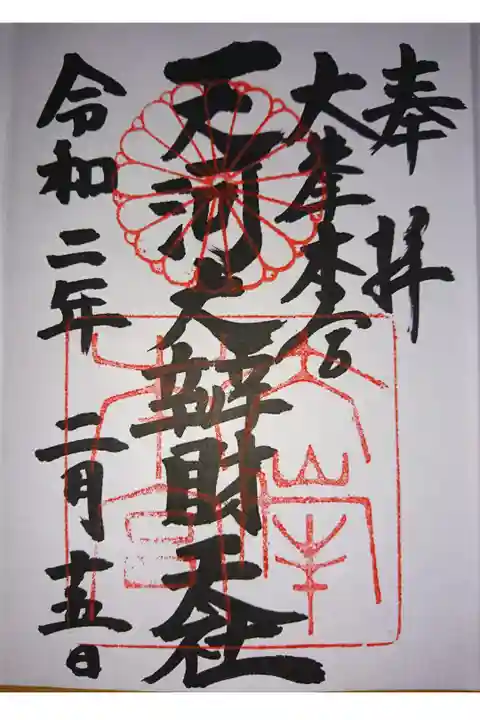 奉拝
大峯本宮
天河大辨財天社
令和二年 二月十五日